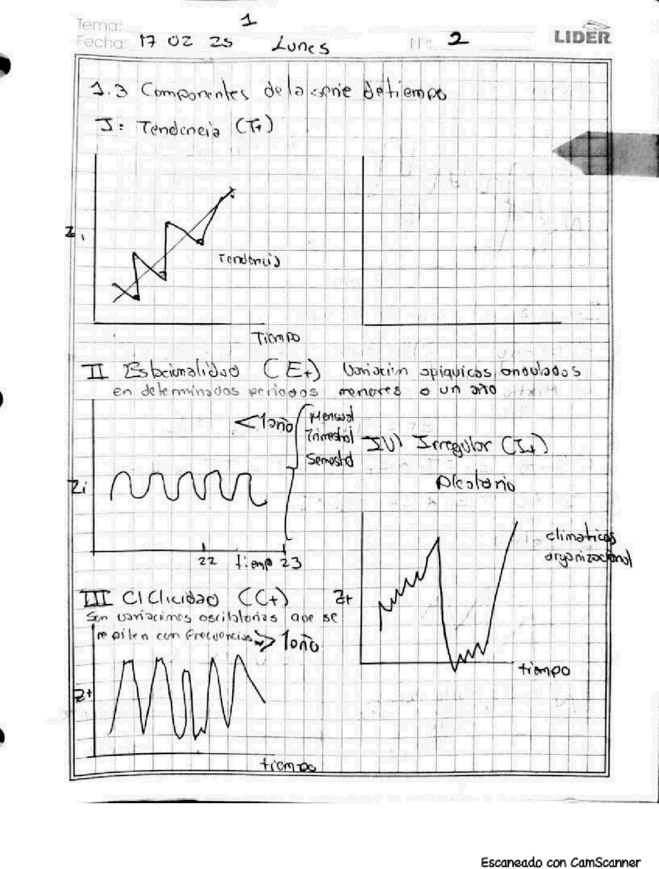 Tema: 1
Fecha: 17 02 25 Lunes Nº 2 LIDER
1.3 Componentes de la serie de tiempo
I: Tendencia (T+)
Zi
Tendencia
Tiempo
II Estacionalidad (E+) Variación ondulados
en determinados periodos menores o un año
<1año
Mensual
Trimestral
Semestral
Zi
22 tiempo 23
III CIClicidad (C+)
Son variaciones oscilatorias que se
repiten con frecuencias > 1año
Z+
tiempo
IV) Irregular (I+)
Aleatorio
climaticos
organizacional
Z+
tiempo
Escaneado con CamScanner